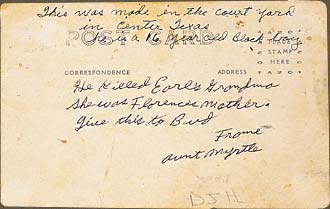 This was made in the court yard
in Center Texas
he is a 16 year old Black boy
POST CARD
PLACE
STAMP
HERE
CORRESPONDENCE ADDRESS
He Killed Earls Grandma
She was Florences Mother.
Give this to Bud
From
aunt Myrtle